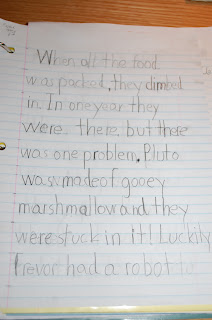 When all the food
was packed, they climbed
in. In one year they
were there, but there
was one problem, Pluto
was made of gooey
marshmallow and they
were stuck in it! Luckily
Trevor had a robot to